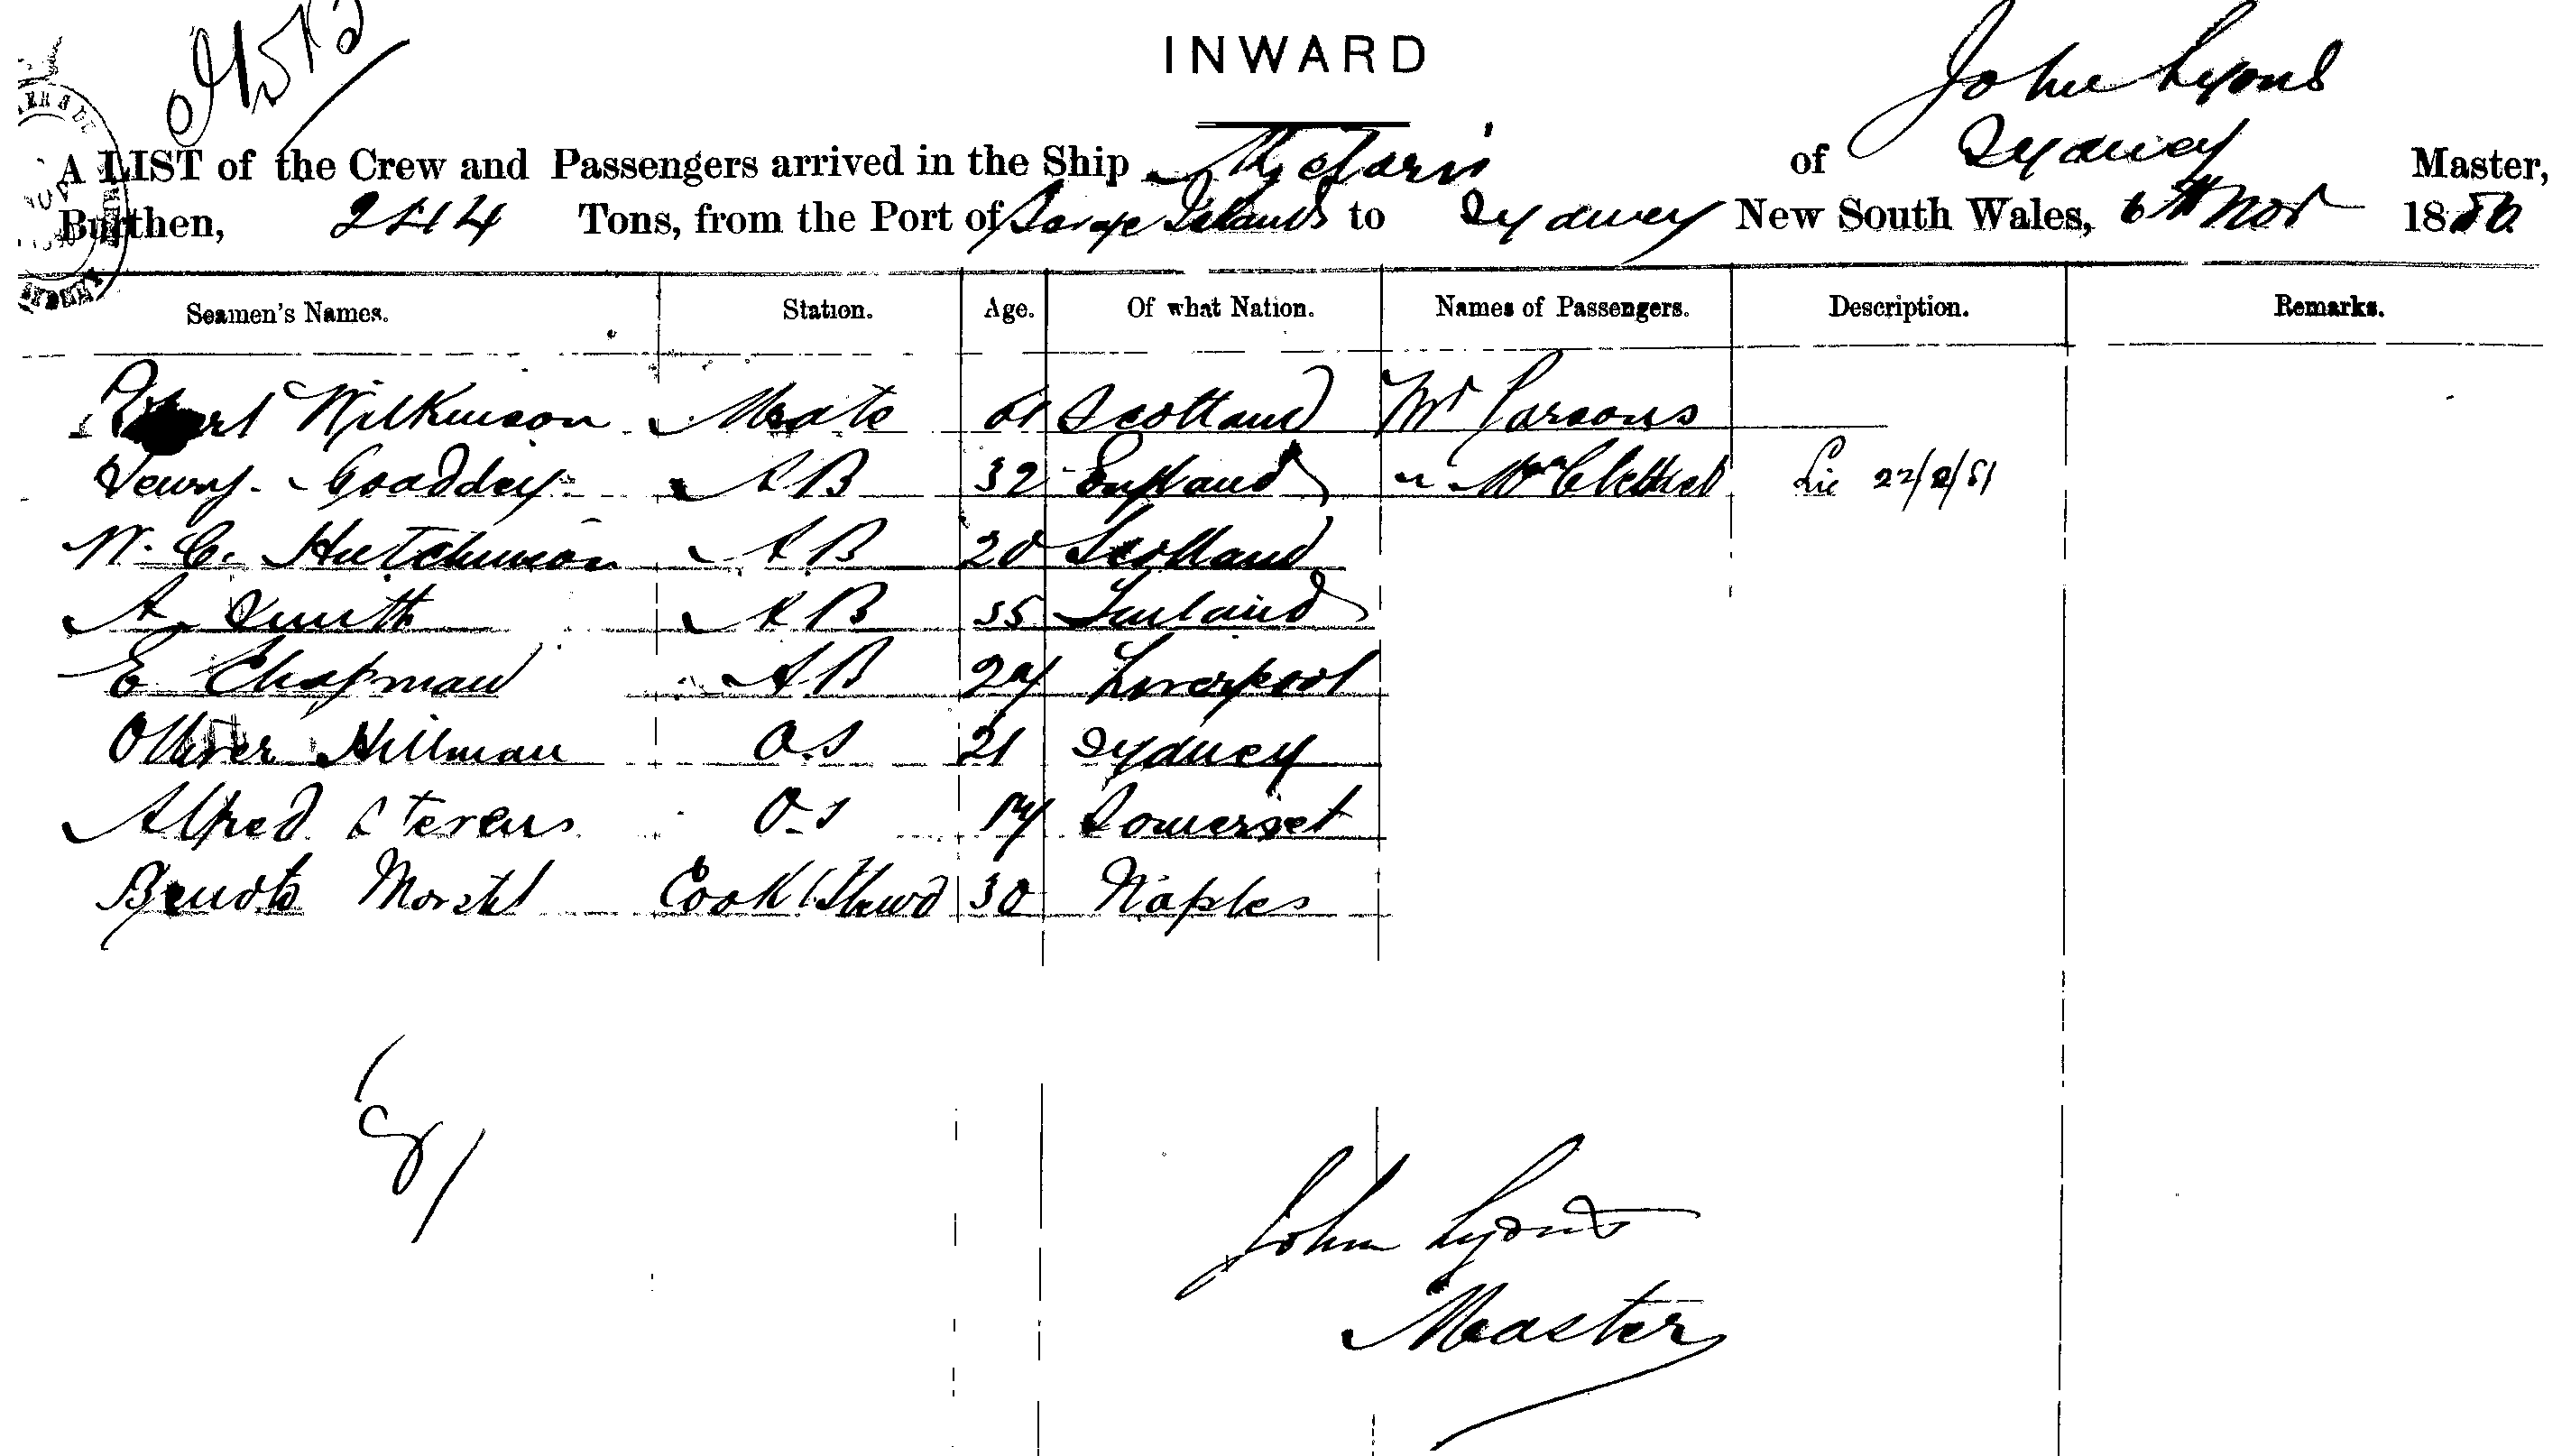 INWARD
John Lyons
A LIST of the Crew and Passengers arrived in the Ship of Sydney Master,
Burthen, 244 Tons, from the Port of Savage Islands to Sydney New South Wales, 6th Novr 1886
Seamen's Names. Station. Age. Of what Nation. Names of Passengers. Description. Remarks.
Wilkinson Mate 61 Scotland Mr Parsons
Henry Goaddey A B 32 England
W. C. Hutchinson A B 20 Scotland
A Smith A B 35
E Chapman A B 24 Liverpool
Olliver Hillman O.S 21 Sydney
Alfred Stevens O.S 17 Somerset
Cook & Stewd 30 Naples
8
John Lyons
Master